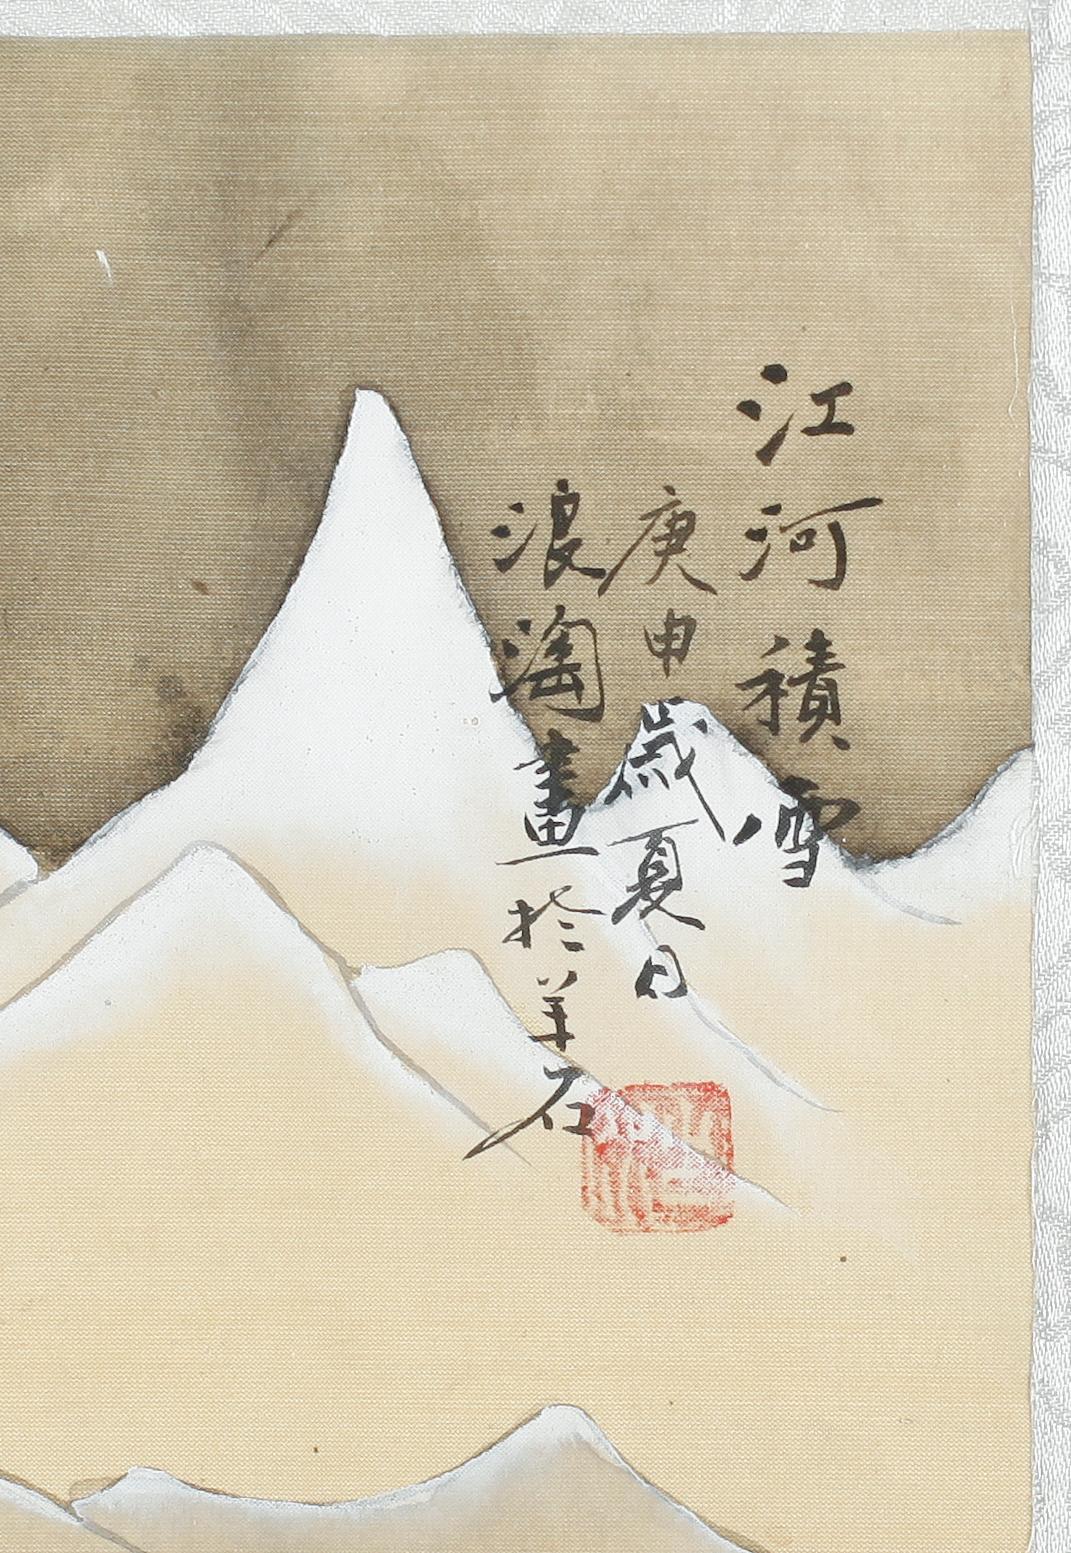 江河積雪
庚申歲夏月
浪淘畫於羊石